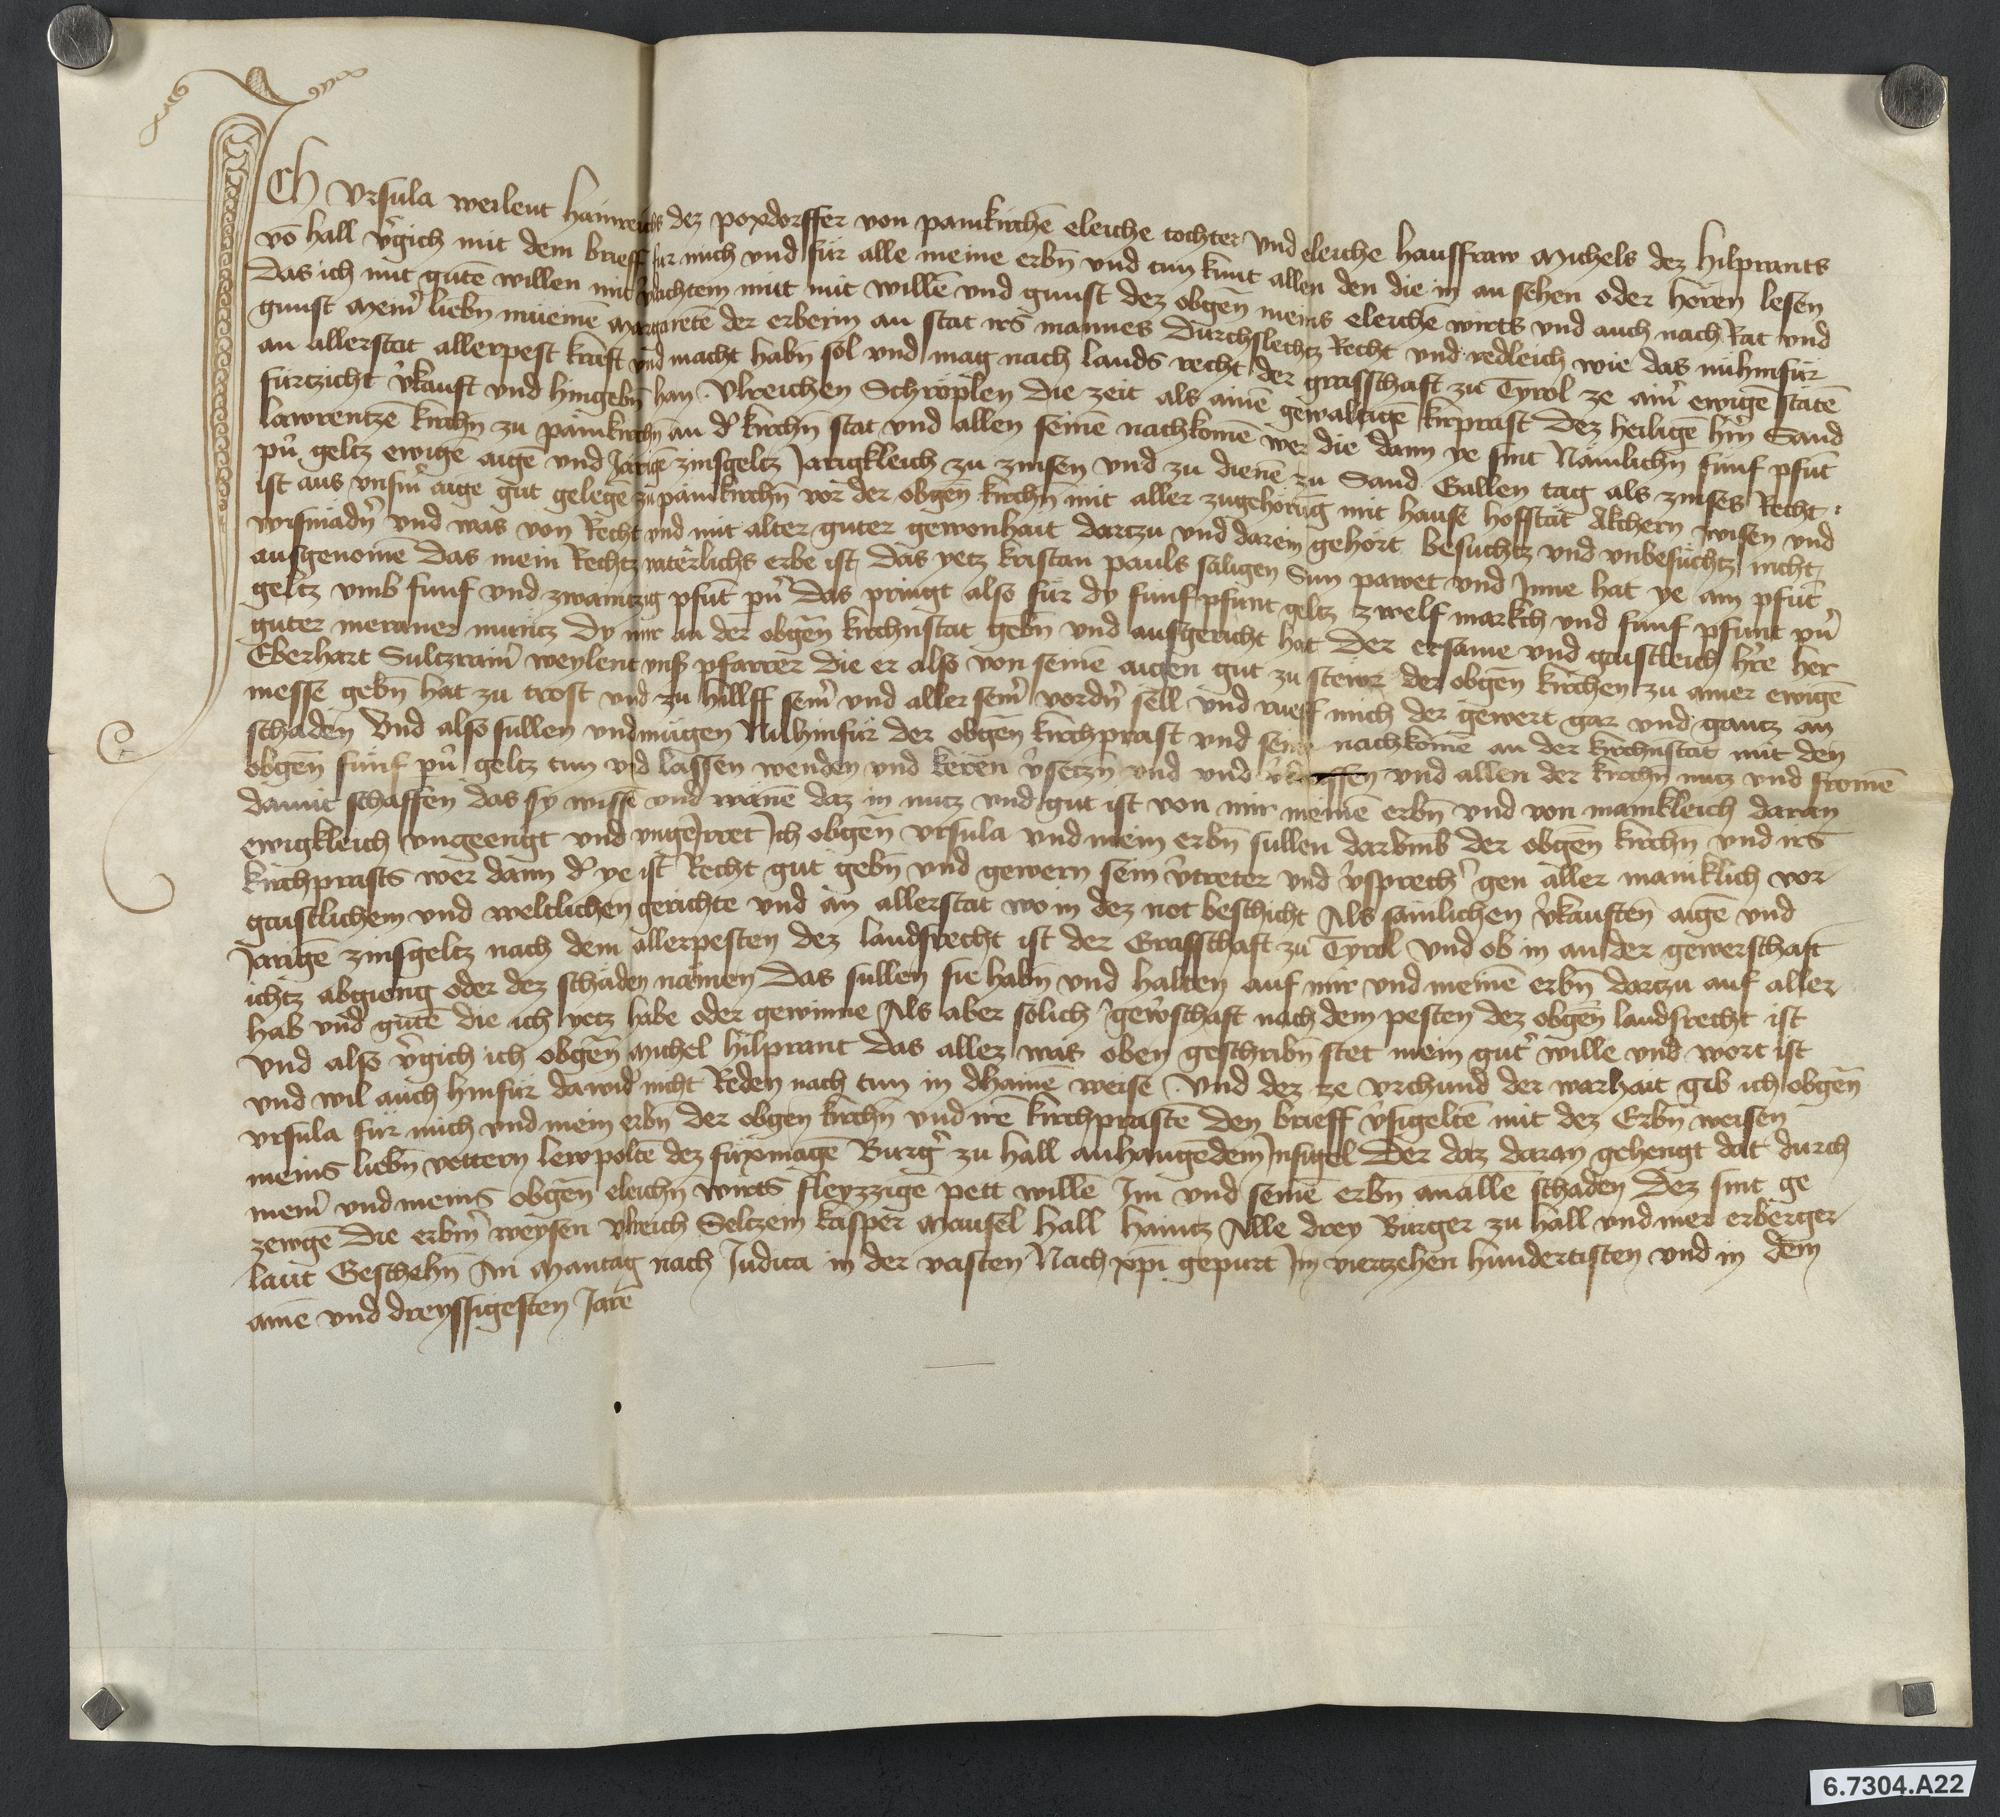 Ich Vrsula weilent Hainreichs dez poxdorffer von pamkirchē eleiche tochter vnd eleiche hausfraw Michels dez hilprants
vō hall v̾gich mit dem brieff für mich vnd für alle meine erbn̄ vnd tun kunt allen den die in an sehen oder hören lesen
Das ich mit gutē willen mit wolbedachtem mut mit willē vnd gunst dez obgen̄ meins eleichē wirts vnd auch nach Rat vnd
gunst Mein̾ liebn̄ müemē Margaretē der erberin an stat irs mannes Durchslechtz Recht vnd redleich wie das nuhinfür
an allerstat allerpest kraft vnd macht habn̄ sol vnd mag nach lands recht der grafschaft zu Tyrol ze ain̾ ewigē statē
fürtzicht v̾kauft vnd hingebn̄ han Vlreichen Schröplen die zeit als ainē gewaltigē kirprast Dez heiligē hrn̄ Sand
lawrentzē kirchn̄ zu pämkirchn̄ an d̾ kirchn̄ stat vnd allen seinē nachkomē wer die dann ye sint Nämlichn̄ fünf pfūt
pn̾ geltz ewige aige vnd Järige zinsgeltz Järigkleich zu zinsen vnd zu dienē zu Sand Gallen tag als zinses Recht
ist aus vnsm̾ aige gut gelegē zu pämkirchn̄ vor der obgen̄ kirchn̄ mit aller zugehörūg mit hause hofstat Akchern wisen vnd
wismadn̾ vnd was von Recht vnd mit alter guter gewonhait dartzu vnd darein gehört besuchtz vnd vnbesüchtz nicht
ausgenomē Das mein Rechtz väterlichs erbe ist das yetz kristan pauls säligen Sun pawet vnd Inne hat ye ain pfūt
geltz vmb fünf vnd zwaintzig pfūt pn̾ Das pringt also für dy fünf pfunt geltz zwelf markch vnd fünf pfunt pn̾
guter meraner münitz Dy mir an der obgen̄ kirchn̄stat gebn̄ vnd ausgericht hat Der ersame vnd gaistleich hr̄e her
Eberhart Sultzrain̾ weylent vnß pfarrer die er also von seinē aigen gut zu stewr der obgen̄ kirchen zu ainer ewigē
messe gebn̄ hat zu trost vnd zu hillff sein̾ vnd aller sein̾ vordn̾ sell vnd ruefft mich der gewert gar vnd gantz an
schaden Vnd also sullen vnd mügen Nuhinfür der obgen̄ kirchprast vnd sein nachkomē an der kirchnstat mit den
obgen̄ fünf pn̾ geltz tun vnd lassen wenden vnd keren v̾setzn̄ vnd vnd v̾kauffen vnd allen der kirchn̄ nutz vnd fromē
damit schaffen das sy wissē vnd wänē daz in nutz vnd gut ist von mir meinē erbn̄ vnd von mainkleich daran
ewigkleich vngeengt vnd vngeirret Ich obgen̄ vrsula vnd mein erbn̄ sullen darvmb der obgen̄ kirchn̄ vnd irs
kirchprasts wer dann d̾ ye ist Recht gut gebn̄ vnd gewern sein v̾treter vnd v̾sprech̾ gen aller mainklich vor
gaistlichem vnd weltlichen gerichte vnd an allerstat wo in dez not beschicht Als sämlichen v̾kauften aigē vnd
Järigē zinsgeltz nach dem allerpesten dez landsrecht ist der Grafschaft zu Tyrol Vnd ob in an der gewerschaft
ichtz abgieng oder dez schaden nämen Das sullen sie habn̄ vnd halten auf mir vnd meinē erbn̄ dartzu auf aller
hab vnd gutē die ich yetz habe oder gewinne Als aber sölich gew̾schaft nach dem pesten dez obgen̄ landsrecht ist
Vnd also v̾gich ich obgen̄ Michel hilprant Das allez was oben geschribn̄ stet mein gut̾ wille vnd wort ist
vnd wil auch hinfür dawid̾ nicht Reden nach tun in dhainē weise Vnd dez ze vrchund der warhait gib ich obgen̄
vrsula für mich vnd mein erbn̄ der obgen kirchn̄ vnd irē kirchprastē den brieff v̾sigeltē mit dez Erbn̄ weisen
meins liebn̄ vettern lewpoltē dez fuxmagē Burg̾ zu hall anhangēdem Insigel Der daz daran gehengt hat durch
mein̾ vnd meins obgen̄ eleichn̄ wirts fleyzzigē pett willē Im vnd seinē erbn̄ an allē schaden Dez sint ge
zewgē Die erbm̾ weysen Vlreich Seltzein kasper Mausel Hall Haintz Alle drey Burger zu hall vnd mer erberger
laut Geschehn̄ An Mantag nach Judica in der vasten Nach xp̄i gepurt Im viertzehen hundertisten vnd in dem
ainē vnd dreyssigesten Jarē
6.7304.A22